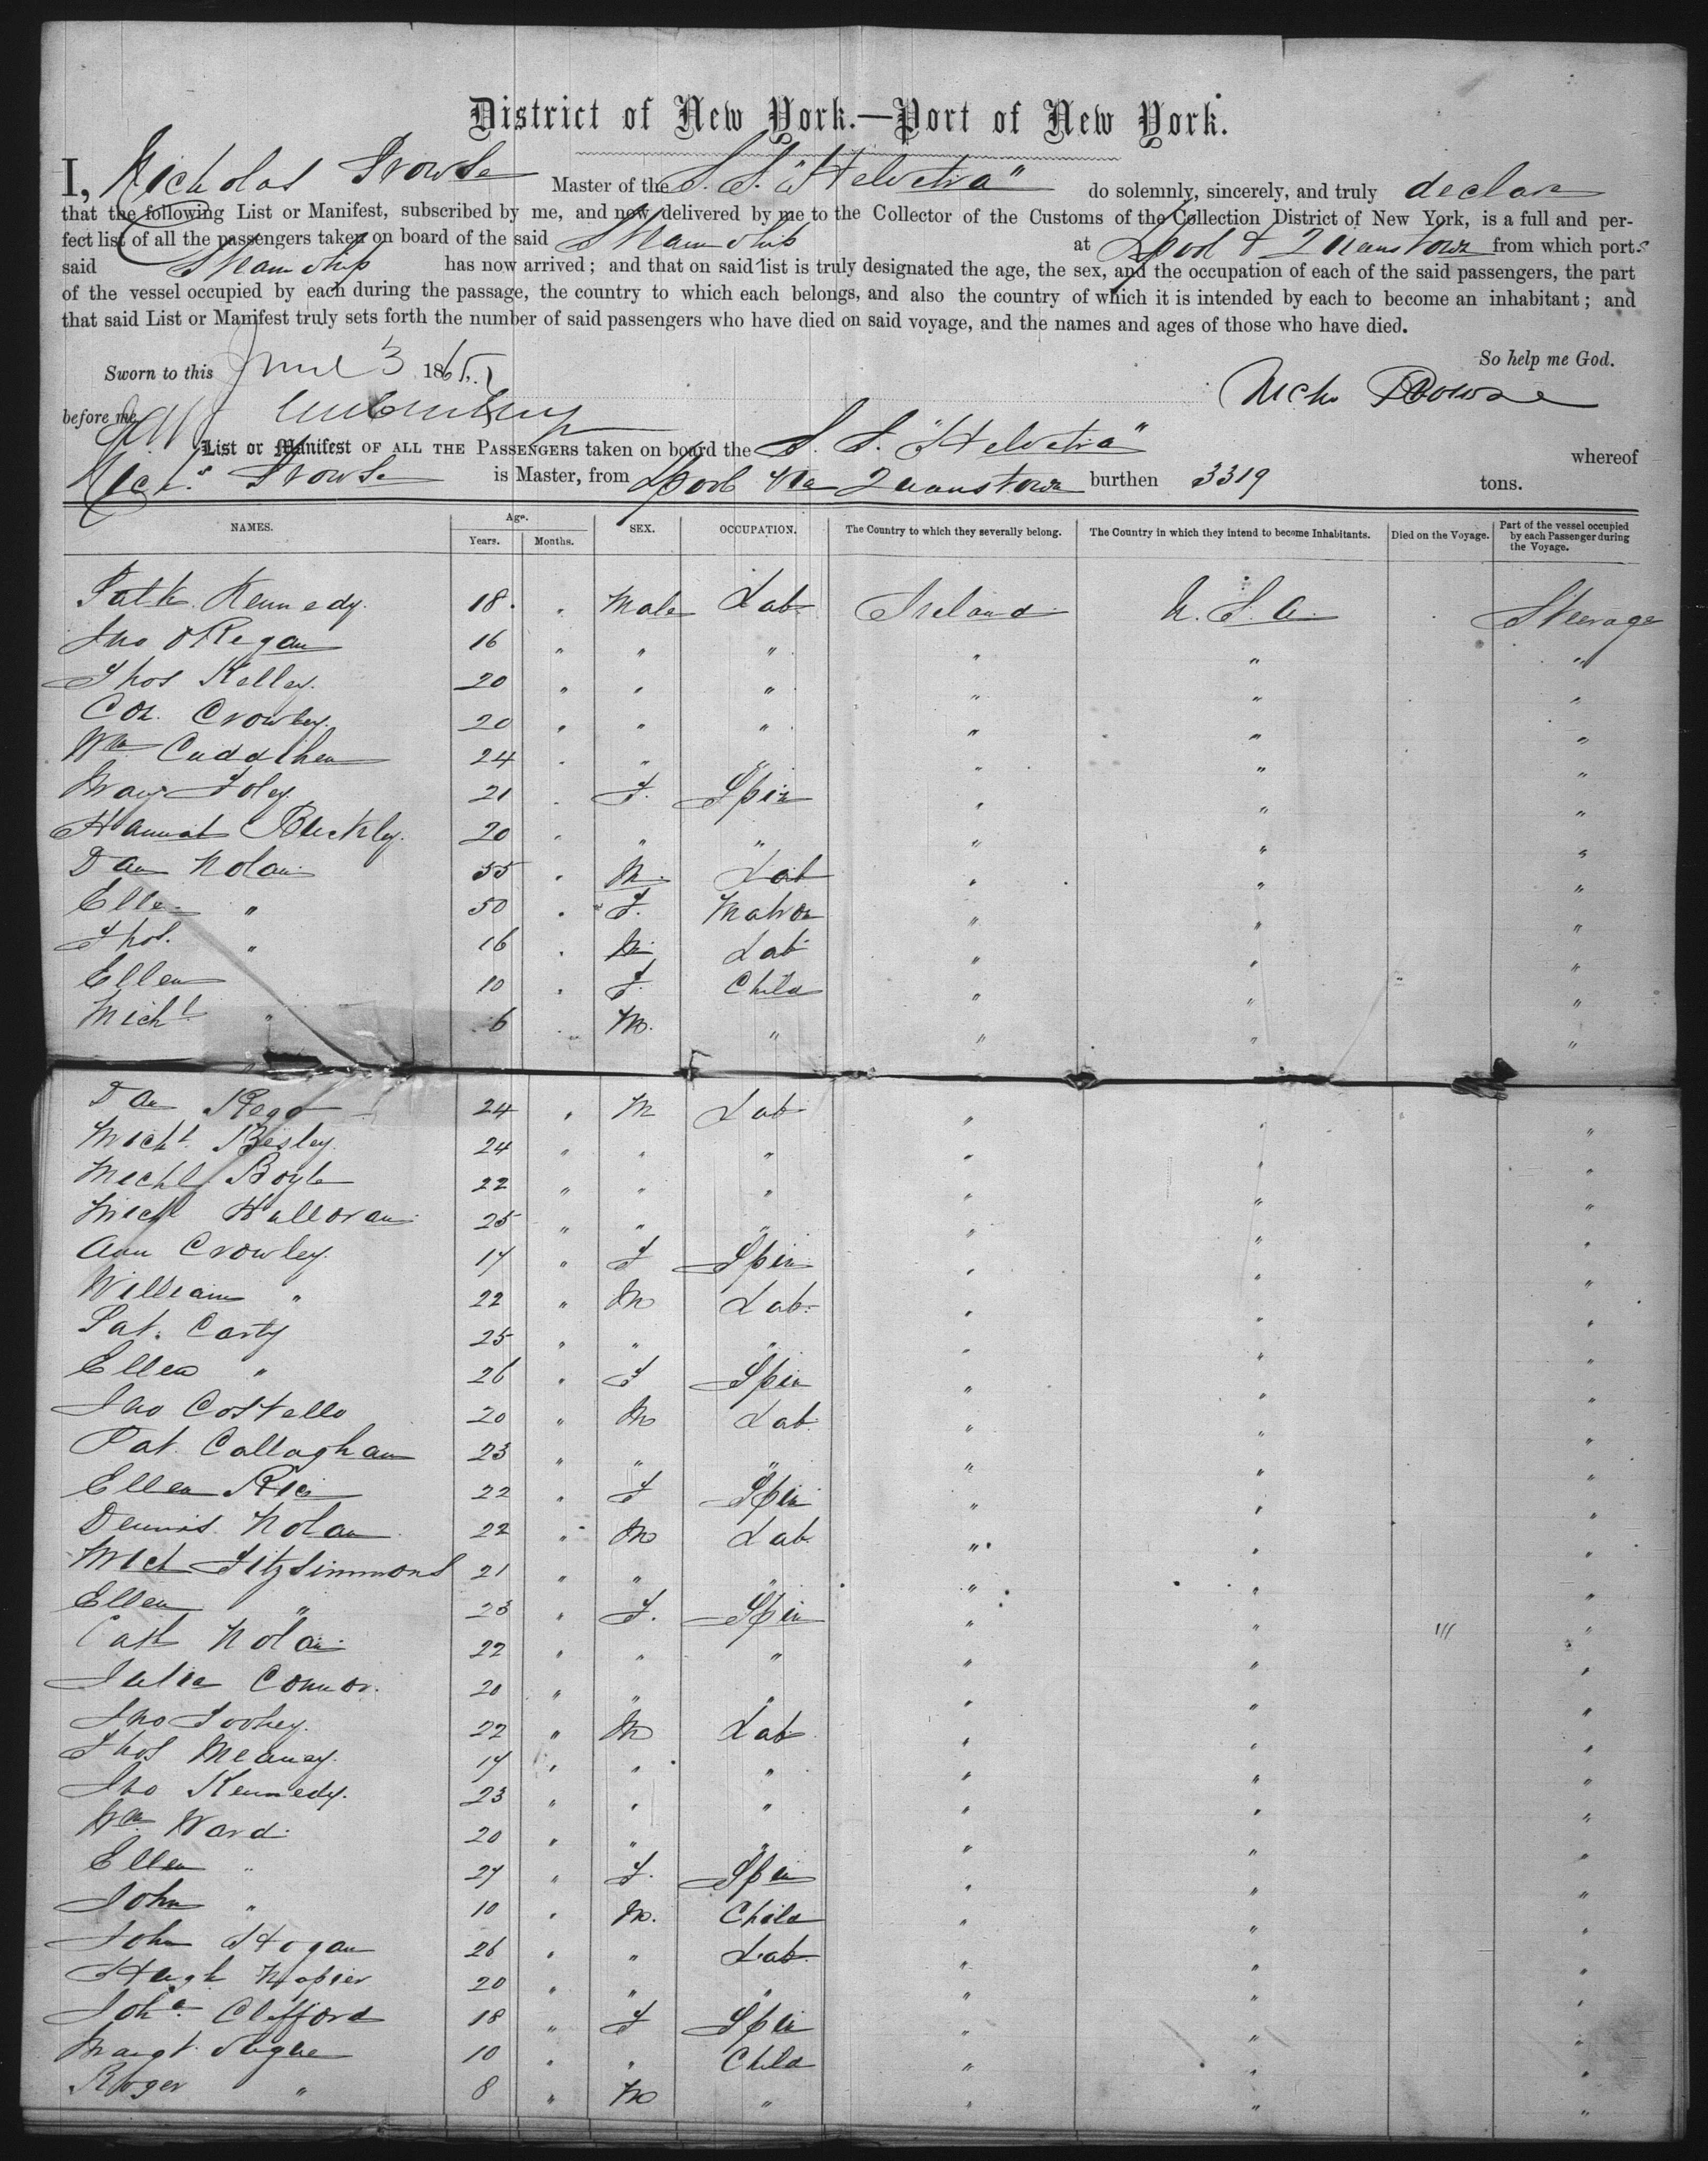 District of New York.—Port of New York.
I, Nicholas Prowse Master of the S. S. "Helvetia" do solemnly, sincerely, and truly declare
that the following List or Manifest, subscribed by me, and now delivered by me to the Collector of the Customs of the Collection District of New York, is a full and per-
fect list of all the passengers taken on board of the said Steam Ship at Lpool & Queenstown from which ports
said Steam Ship has now arrived; and that on said list is truly designated the age, the sex, and the occupation of each of the said passengers, the part
of the vessel occupied by each during the passage, the country to which each belongs, and also the country of which it is intended by each to become an inhabitant; and
that said List or Manifest truly sets forth the number of said passengers who have died on said voyage, and the names and ages of those who have died.
So help me God.
Sworn to this June 3 1865
Nichs Prowse
before me
List or Manifest OF ALL THE PASSENGERS taken on board the S. S. "Helvetia" whereof
Nichs Prowse is Master, from Lpool via Queenstown burthen 3319 tons.
NAMES. Age. Years. Months. SEX. OCCUPATION. The Country to which they severally belong. The Country in which they intend to become Inhabitants. Died on the Voyage. Part of the vessel occupied by each Passenger during the Voyage.
Patk Kennedy. 18 " Male Lab Ireland U. S. A. Steerage
Jno O'Regan 16 " " " " " "
Thos Kelley. 20 " " " " " "
Cor. Crowley. 20 " " " " " "
Wm Cuddihea 24 " " " " " "
Mary Foley 21 " F. Spin " " "
Hannah Buckley. 20 " " " " " "
Dan Nolan 55 " M. Lab " " "
Ellen " 50 " F. Matron " " "
Thos. " 16 " M. Lab " " "
Ellen 10 " F. Child " " "
Michl " 6 " M. " " " "
Dan 24 " M Lab " " "
Michl Besley. 24 " " " " " "
Michl Boyle 22 " " " " " "
Michl Halloran 25 " " " " " "
Ann Crowley. 17 " F Spin " " "
William " 22 " M Lab. " " "
Pat. Carty 25 " " " " " "
Ellen " 26 " F Spin " " "
Jno Costello 20 " M Lab. " " "
Pat. Callaghan 23 " " " " " "
Ellen Rice 22 " F Spin " " "
Dennis Nolan 22 " M Lab. " " "
Mich Fitzsimmons 21 " " " " " "
Ellen " 23 " F. Spin " " "
Cath Nolan 22 " " " " " "
Julia Connor. 20 " " " " " "
Jno Toohey. 22 " M Lab " " "
Thos Meaney. 17 " " " " " "
Jno Kennedy. 23 " " " " " "
Wm Ward. 20 " " " " " "
Ellen " 27 " F. Spin " " "
John " 10 " M. Child " " "
John Hogan 26 " " Lab. " " "
Hugh Napier 20 " " " " " "
Joha Clifford 18 " F Spin " " "
Margt 10 " " Child " " "
Roger " 8 " M " " " "